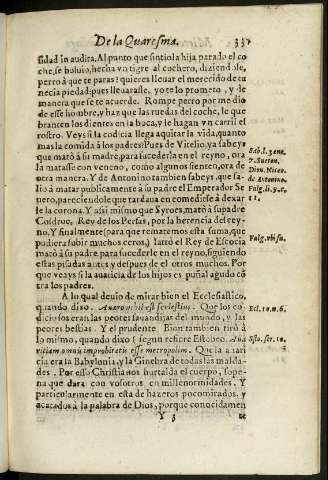 De la Quaresma.
sidad inaudita. Al panto que sintio la hija parado el co
che, se boluio, hecha vn tigre al cochero, diziendole,
perro à que te paras? quieres lleuar el merecido de tu
necia piedad: pues lleuarasle, yo te lo prometo, y de
manera que se te acuerde. Rompe perro por medio
de esse hombre, y haz que las ruedas del coche, le que
branten los dientes en la boca, y le hagan vn carril el
rostro. Veys si la codicia llega aquitar la vida, quanto
mas la comida à los padres! Pues de Vitelio, ya sabeys
que matò à su madre, para suceder la en el reyno, ora
la matasse con veneno, como algunos sienten, ora de
otra manera. Y de Antonino tambien sabeys, que sa-
lio à matar publicamente à su padre el Emperador Se
uero, pareciendole que tardaua en comedirse à dexar
le la corona. Y assi mismo que Syroes, matò à su padre
Cosdroe, Rey de los Persas, por la herencia del rey-
no. Y finalmente (para que rematemos esta suma, que
pudiera subir muchos ceros,) Iatrò el Rey de Escocia
matò à su padre, para sucederle en el reyno, siguiendo
estas pisadas antes y despues de el otros muchos. Por
que veays si la auaricia de los hijos es puñal agudo cõ
tra los padres.
A lo qual deuio de mirar bien el Ecclesiastico,
quando dixo. Auaro nihil est scelestius. Que los co
diciosos eran las peores sauandijas del mundo, y las
peores bestias. Y el prudente. Bion tambien tirò à
lo mismo, quando dixo (segun refiere Estobeo. Aua
ritiam omnis improbitatis esse metropolim. Que la auari
cia era la Babylonia, y la Ginebra de todas las malda-
des. Por esso Christianos hurtalda el cuerpo, so pe-
na que dara con vosotros en mil enormidades. Y
particularmente en esta de hazeros pocomirados, y
acatados à la palabra de Dios, porque conocidamen
Y 3
te
Sab. l.
Dion. Nice.
de Antonino.
Fulg. li. 9. c,
11.
Fulg. vbi su.
Ecl. 10. n. 6.
Sto. ser. 10.